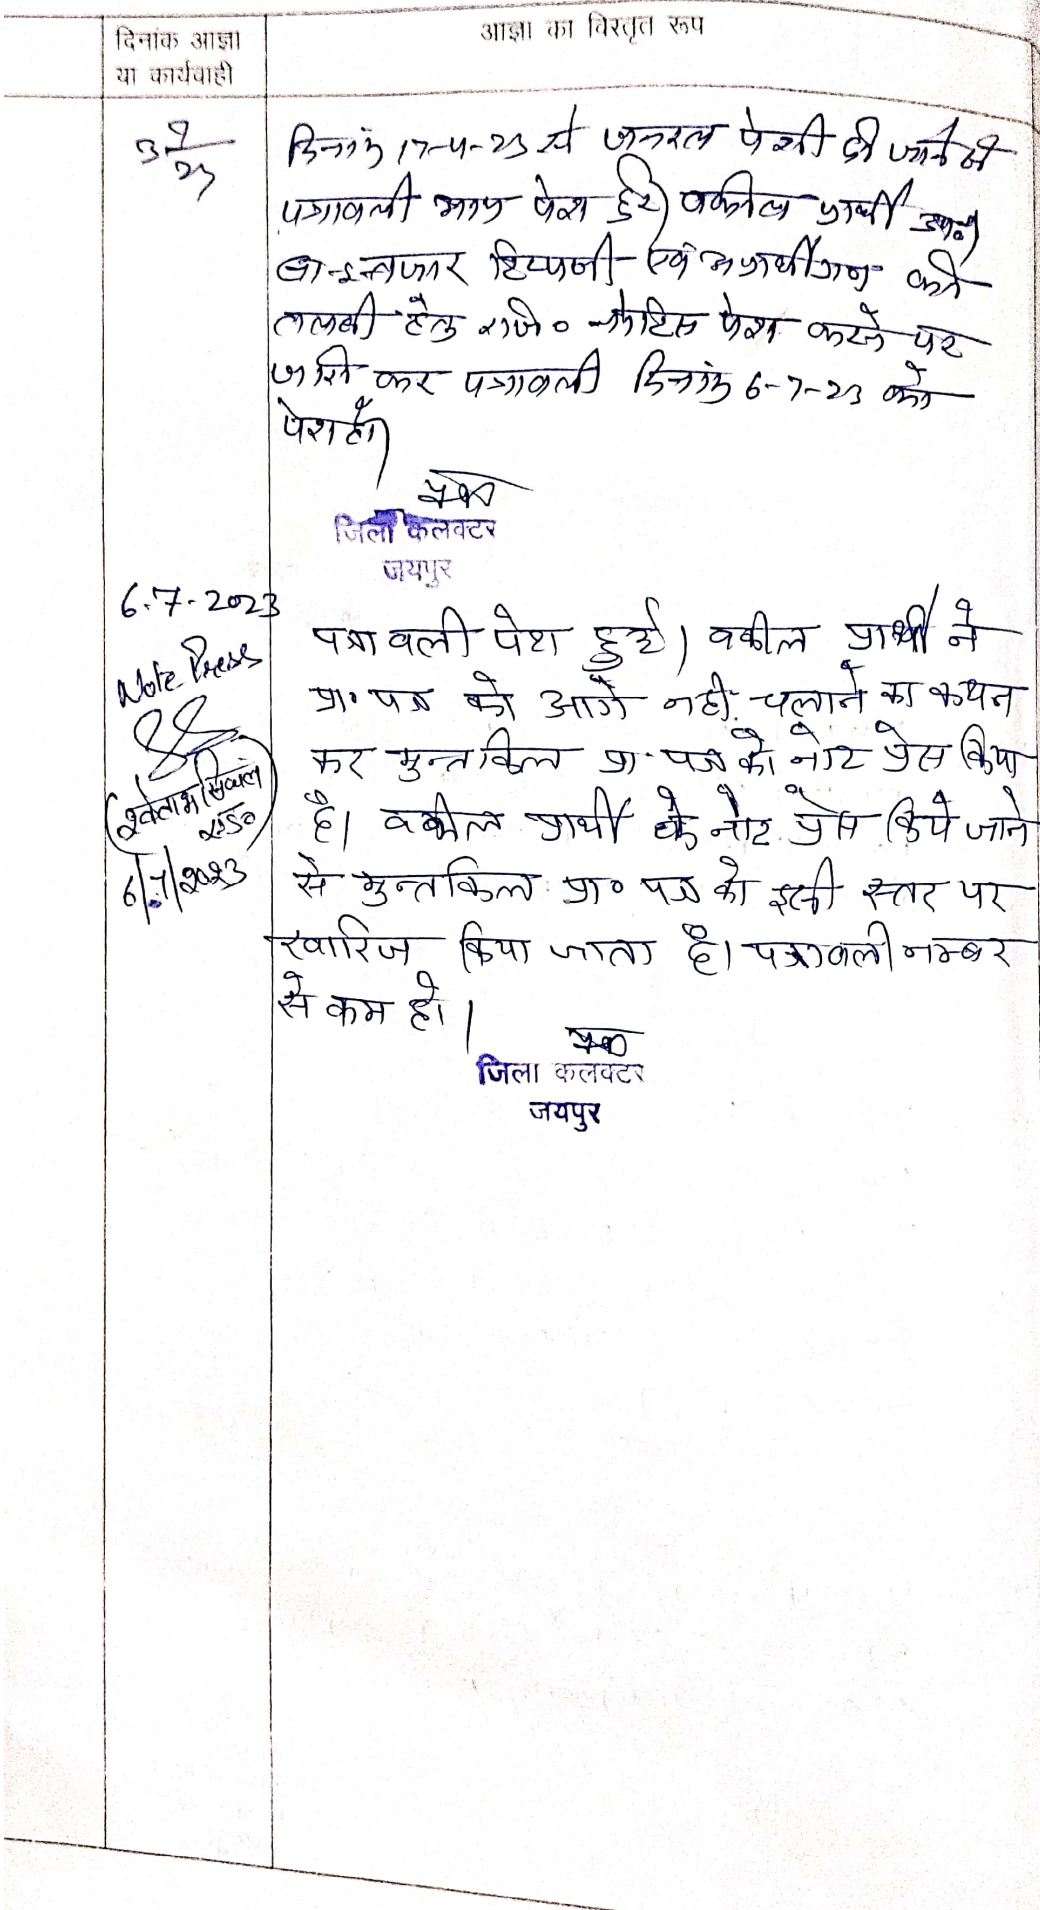 दिनांक आज्ञा
या कार्यवाही
आज्ञा का विस्तृत रूप
दिनांक 17-4-23 से जनरल पेशी दी जाने से
पत्रावली आज पेश हुई। वकील प्रार्थी उप०।
बा-इन्तजार टिप्पणी एवं अप्रार्थीगण की
तलबी हेतु रजि० नोटिस पेश करने पर
जारी कर पत्रावली दिनांक 6-7-23 को
पेश हो।
जिला कलक्टर
जयपुर
6.7.2023
Note Press
6/7/2023
पत्रावली पेश हुई। वकील प्रार्थी ने
प्रा० पत्र को आगे नहीं चलाने का कथन
कर मुन्तकिल प्रा० पत्र को नोट प्रेस किया
है। वकील प्रार्थी के नोट प्रेस किये जाने
से मुन्तकिल प्रा० पत्र को इसी स्तर पर
खारिज किया जाता है। पत्रावली नम्बर
से कम हो।
जिला कलक्टर
जयपुर